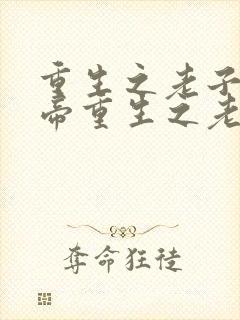 重生之老子
帝重生之老
夺命狂徒